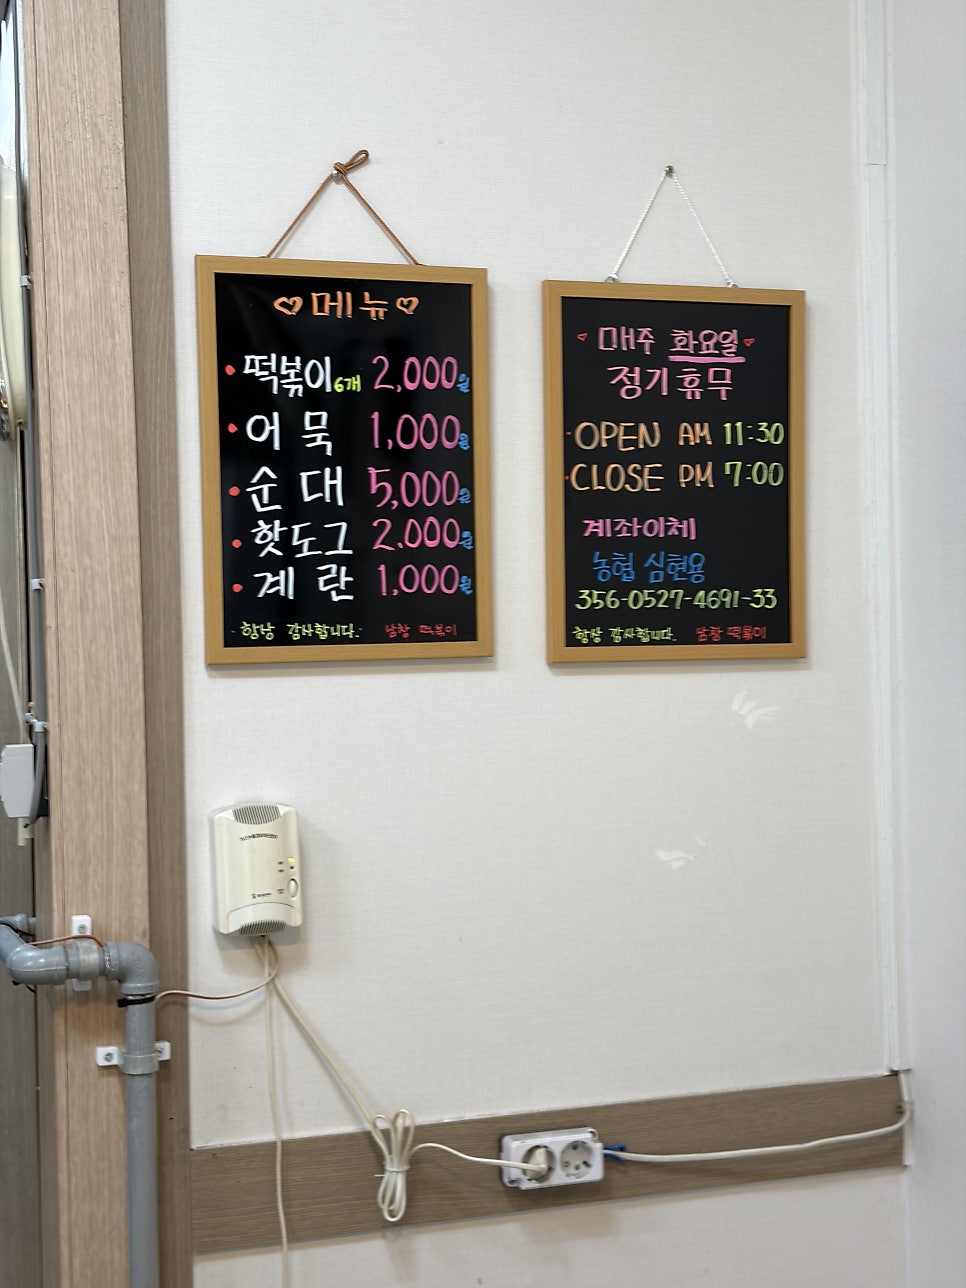 ♡메뉴♡
• 떡볶이6개 2,000원
• 어묵 1,000원
• 순대 5,000원
• 핫도그 2.000원
• 계란 1,000원
항상 감사합니다. 남창 떡볶이
♡매주 화요일♡
정기휴무
OPEN AM 11:30
CLOSE PM 7:00
계좌이체
농협 심현용
356-0527-4691-33
항상 감사합니다. 남창 떡볶이